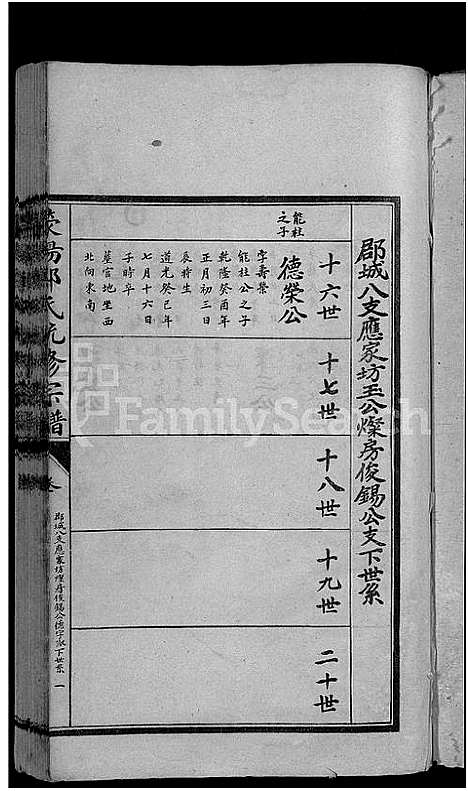 郡城八支應家坊玉公燦房俊錫公支下世系
十六世
十七世
十八世
十九世
二十世
能柱
之子
德榮公
字壽榮
能柱公之子
乾隆癸酉年
正月初三日
辰時生
道光癸巳年
七月十六日
子時卒
墓官地坐西
北向東南
滎陽鄭氏統修宗譜
郡城八支應家坊燦房俊錫公德字派下世系 一
FamilySearch